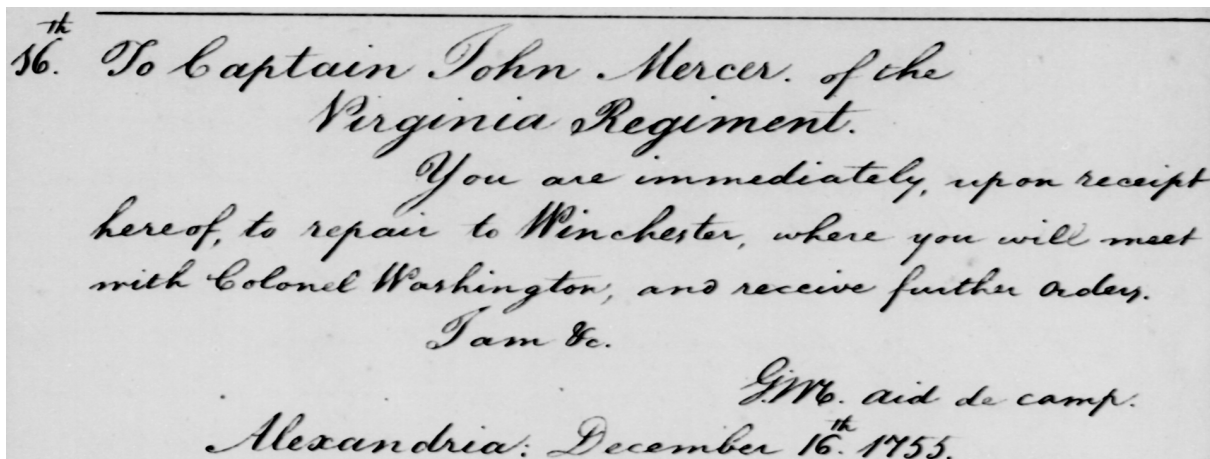 16.th To Captain John Mercer. of the
Virginia Regiment.
You are immediately, upon receipt
hereof, to repair to Winchester, where you will meet
with Colonel Washington, and receive further orders.
I am &c.
G.M. aid de camp.
Alexandria: December 16.th 1755.